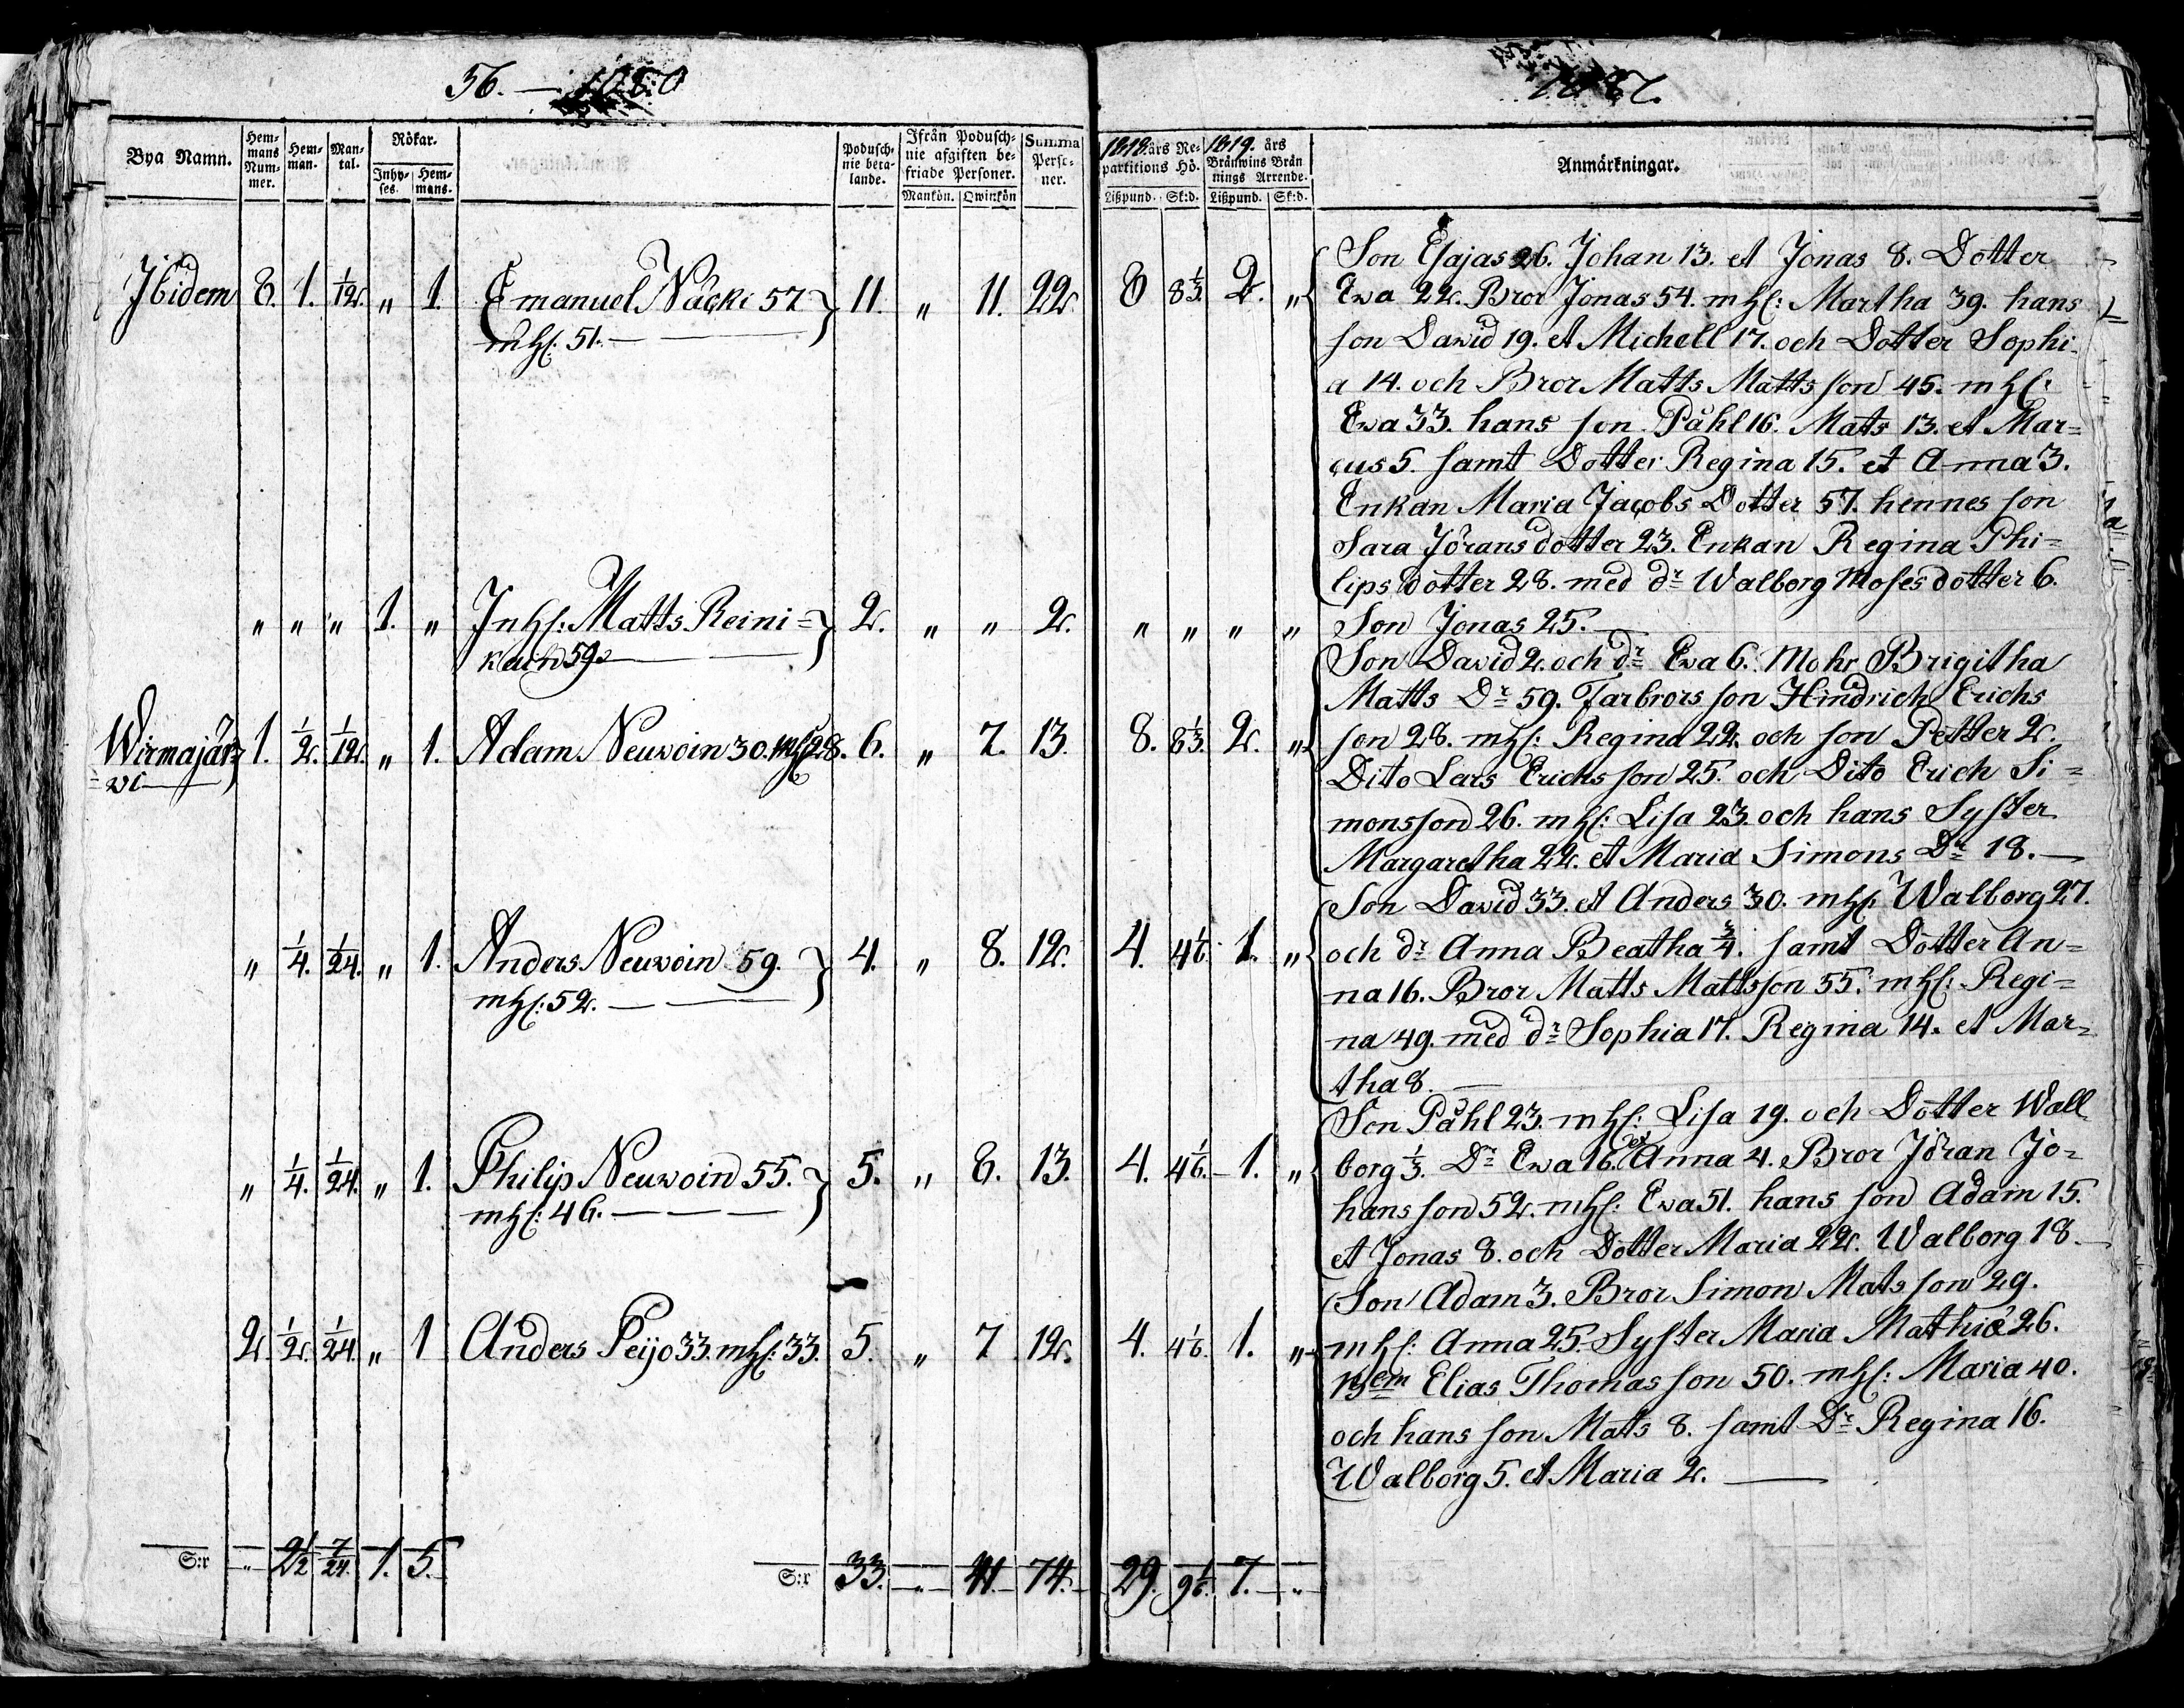 56.
Bya Namn. Hem- mans Num- mer. Hem- man. Man- tal. Rökar. Inhy- ses. Hem- mans. Podusch- nie beta- lande. Ifrån Podusch- nie afgiften be- friade Personer. Mankön. Qwinkön Summa Perso- ner.
1818. års Re- partitions Hö. Lißpund. Sk:d. 1819. års Bränwins Brän nings Arrende. Lißpund. Sk:d. Anmärkningar.
Ibidem 8. 1. 1/12. „ 1. Emanuel Näcki 57 11. „ 11. 22 8 8 1/3 2. „
mhf. 51.
Son Esajas 26. Johan 13. et Jonas 8. Dotter
Ewa 22. Bror Jonas 54. mhf: Martha 39. hans
son Dawid 19. et Michell 17. och Dotter Sophi-
a 14. och Bror Matts Mattsson 45. mhf:
Ewa 33. hans son Påhl 16. Mats 13. et Mar=
cus 5. samt Dotter Regina 15. et Anna 3.
Enkan Maria Jacobs Dotter 57. hennes son
Sara Jöransdotter 23. Enkan Regina Phi=
lipsdotter 28. med dr Walborg Mosesdotter 6.
„ „ „ 1. „ Inhs: Matts Reini= 2. „ „ 2. „ „ „ „ Son Jonas 25.
kain 59.
Wirmajär= 1. 1/2. 1/12. „ 1. Adam Neuwoin 30. mhf 28. 6. „ 7. 13. 8. 8 1/3. 2. „
wi
Son Dawid 2. och dr Ewa 6. Mohr Brigitha
Matts Dr 59. Farbrors son Hindrich Erichs
son 28. mhf: Regina 22. och son Petter 2.
Dito Lars Erichsson 25. och Dito Erich Si=
monsson 26. mhf: Lisa 23. och hans Syster
Margaretha 22. et Maria Simons Dr 18.
„ 1/4. 1/24. „ 1. Anders Neuwoin 59. 4. „ 8. 12. 4. 4 1/6. 1. „
mhf: 52.
Son Dawid 33. et Anders 30. mhf: Walborg 27.
och dr Anna Beatha 3/4. samt Dotter An=
na 16. Bror Matts Mattsson 55. mhf: Regi=
na 49. med dr Sophia 17. Regina 14. et Mar=
tha 8.
„ 1/4. 1/24. „ 1. Philip Neuwoin 55. 5. „ 8. 13. 4. 4 1/6. 1. „
mhf: 46.
Son Påhl 23. mhf: Lisa 19. och Dotter Wall
borg 1/3. Dr Ewa 16. et Anna 4. Bror Jöran Jo=
hansson 52. mhf: Ewa 51. hans son Adam 15.
et Jonas 8. och Dotter Maria 22. Walborg 18.
2. 1/2. 1/24. „ 1 Anders Peijo 33. mhf: 33. 5. „ 7 12. 4. 4 1/6. 1. „
Son Adam 3. Bror Simon Matsson 29.
mhf: Anna 25. Syster Maria Mathiæ 26.
Elias Thomasson 50. mhf: Maria 40.
och hans son Mats 8. samt Dr Regina 16.
Walborg 5. et Maria 2.
S:r „ 2 1/2 7/24. 1. 5. S:r 33. „ 41. 74. 29. 9 1/6. 7. „